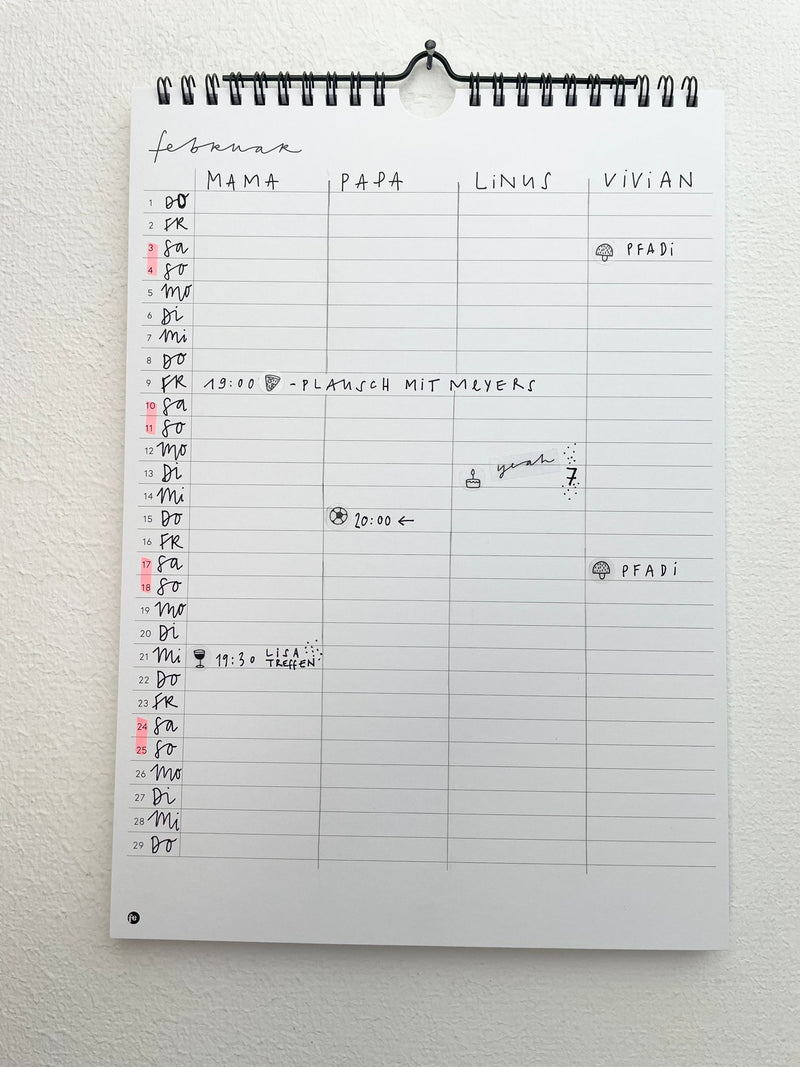 februar
MAMA PAPA LINUS VIVIAN
1 DO
2 FR
3 Sa PFADI
4 So
5 Mo
6 Di
7 Mi
8 Do
9 FR 19:00 -PLAUSCH MIT MEYERS
10 Sa
11 So
12 Mo
13 Di yeah 7
14 Mi
15 Do 20:00 ←
16 FR
17 Sa PFADI
18 So
19 Mo
20 Di
21 Mi 19:30 LISA
TREFFEN
22 Do
23 FR
24 Sa
25 So
26 Mo
27 Di
28 Mi
29 Do
fe